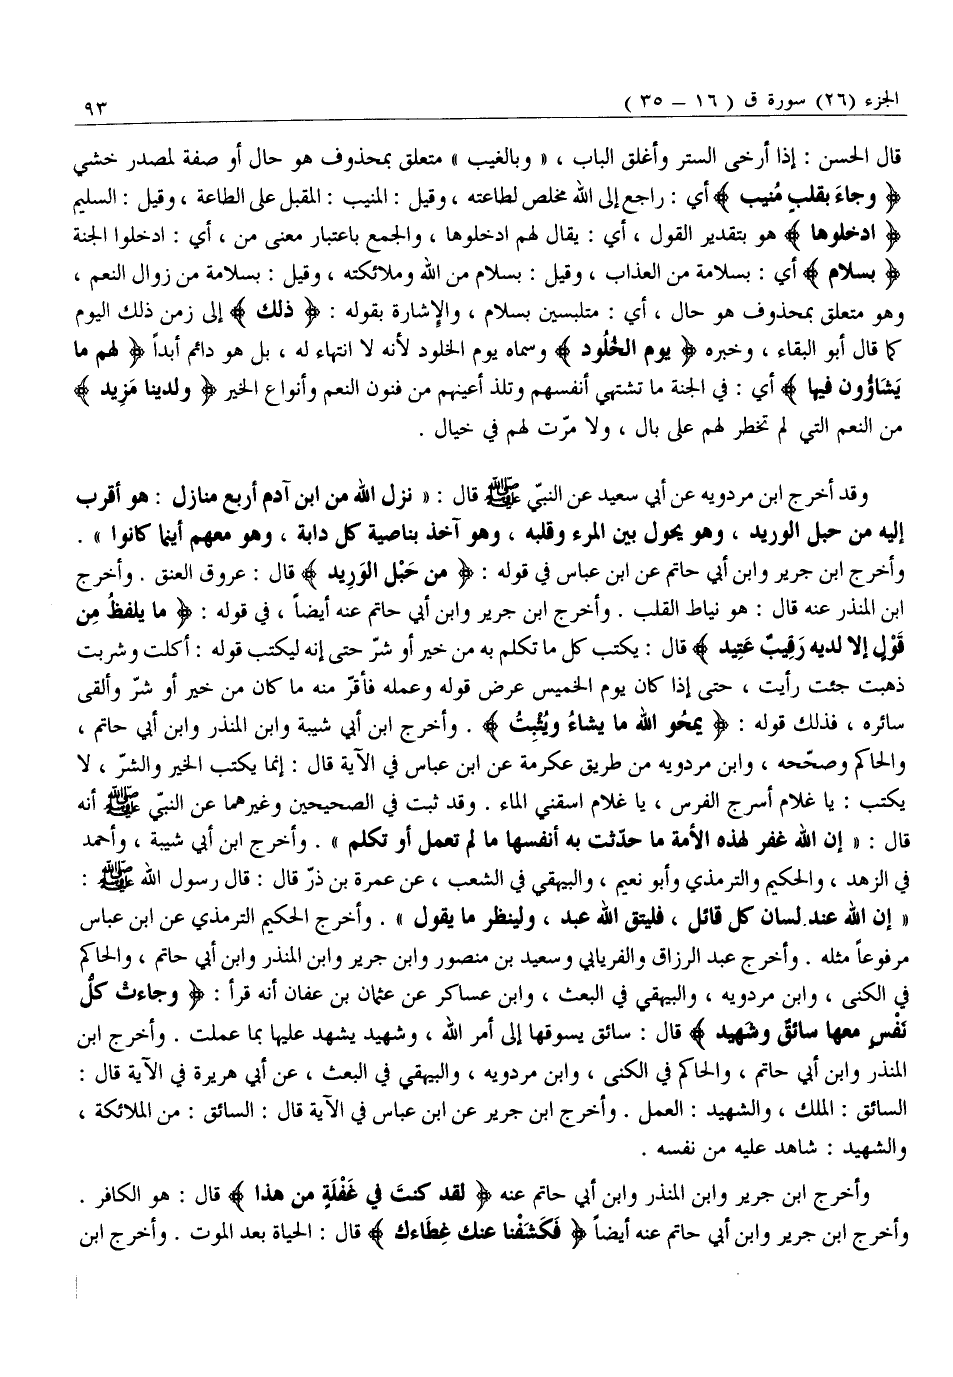 الجزء (٢٦) سورة ق ( ١٦ – ٣٥ )
٩٣
قال الحسن : إذا أرخى الستر وأغلق الباب ، « وبالغيب » متعلق بمحذوف هو حال أو صفة لمصدر خشي
﴿ وجاءَ بقلبٍ مُنيب ﴾ أي : راجع إلى الله مخلص لطاعته ، وقيل : المنيب : المقبل على الطاعة ، وقيل : السليم
﴿ ادخلوها ﴾ هو بتقدير القول ، أي : يقال لهم ادخلوها ، والجمع باعتبار معنى من ، أي : ادخلوا الجنة
﴿ بسلام ﴾ أي : بسلامة من العذاب ، وقيل : بسلام من الله وملائكته ، وقيل : بسلامة من زوال النعم ،
وهو متعلق بمحذوف هو حال ، أي : متلبسين بسلام ، والإشارة بقوله : ﴿ ذلك ﴾ إلى زمن ذلك اليوم
كما قال أبو البقاء ، وخبره ﴿ يوم الخُلُود ﴾ وسماه يوم الخلود لأنه لا انتهاء له ، بل هو دائم أبداً ﴿ لهم ما
يَشاؤُون فيها ﴾ أي : في الجنة ما تشتهي أنفسهم وتلذ أعينهم من فنون النعم وأنواع الخير ﴿ ولدينا مَزيد ﴾
من النعم التي لم تخطر لهم على بال ، ولا مرّت لهم في خيال .
وقد أخرج ابن مردويه عن أبي سعيد عن النبيّ ﷺ قال : « نزل الله من ابن آدم أربع منازل : هو أقرب
إليه من حبل الوريد ، وهو يحول بين المرء وقلبه ، وهو آخذ بناصية كل دابة ، وهو معهم أينما كانوا » .
وأخرج ابن جرير وابن أبي حاتم عن ابن عباس في قوله : ﴿ من حَبْل الوَريد ﴾ قال : عروق العنق . وأخرج
ابن المنذر عنه قال : هو نياط القلب . وأخرج ابن جرير وابن أبي حاتم عنه أيضاً ، في قوله : ﴿ ما يلفظُ مِن
قَوْلٍ إلا لديه رَقيبٌ عَتِيد ﴾ قال : يكتب كل ما تكلم به من خير أو شرّ حتى إنه ليكتب قوله : أكلت وشربت
ذهبت جئت رأيت ، حتى إذا كان يوم الخميس عرض قوله وعمله فأقرّ منه ما كان من خير أو شرّ وألقى
سائره ، فذلك قوله : ﴿ يمحُو الله ما يشاءُ ويُثْبِتُ ﴾ . وأخرج ابن أبي شيبة وابن المنذر وابن أبي حاتم ،
والحاكم وصحّحه ، وابن مردويه من طريق عكرمة عن ابن عباس في الآية قال : إنما يكتب الخير والشرّ ، لا
يكتب : يا غلام أسرج الفرس ، يا غلام اسقني الماء . وقد ثبت في الصحيحين وغيرهما عن النبيّ ﷺ أنه
قال : « إن الله غفر لهذه الأمة ما حدّثت به أنفسها ما لم تعمل أو تكلم » . وأخرج ابن أبي شيبة ، وأحمد
في الزهد ، والحكيم والترمذي وأبو نعيم ، والبيهقي في الشعب ، عن عمرة بن ذرّ قال : قال رسول الله ﷺ :
« إن الله عند لسان كل قائل ، فليتق الله عبد ، ولينظر ما يقول » . وأخرج الحكيم الترمذي عن ابن عباس
مرفوعاً مثله . وأخرج عبد الرزاق والفريابي وسعيد بن منصور وابن جرير وابن المنذر وابن أبي حاتم ، والحاكم
في الكنى ، وابن مردويه ، والبيهقي في البعث ، وابن عساكر عن عثمان بن عفان أنه قرأ : ﴿ وجاءتْ كلُّ
نَفْسٍ معها سائقٌ وشَهيد ﴾ قال : سائق يسوقها إلى أمر الله ، وشهيد يشهد عليها بما عملت . وأخرج ابن
المنذر وابن أبي حاتم ، والحاكم في الكنى ، وابن مردويه ، والبيهقي في البعث ، عن أبي هريرة في الآية قال :
السائق : الملك ، والشهيد : العمل . وأخرج ابن جرير عن ابن عباس في الآية قال : السائق : من الملائكة ،
والشهيد : شاهد عليه من نفسه .
وأخرج ابن جرير وابن المنذر وابن أبي حاتم عنه ﴿ لقد كنتَ في غَفْلَةٍ من هذا ﴾ قال : هو الكافر .
وأخرج ابن جرير وابن أبي حاتم عنه أيضاً ﴿ فَكَشَفْنا عنك غِطَاءك ﴾ قال : الحياة بعد الموت . وأخرج ابن